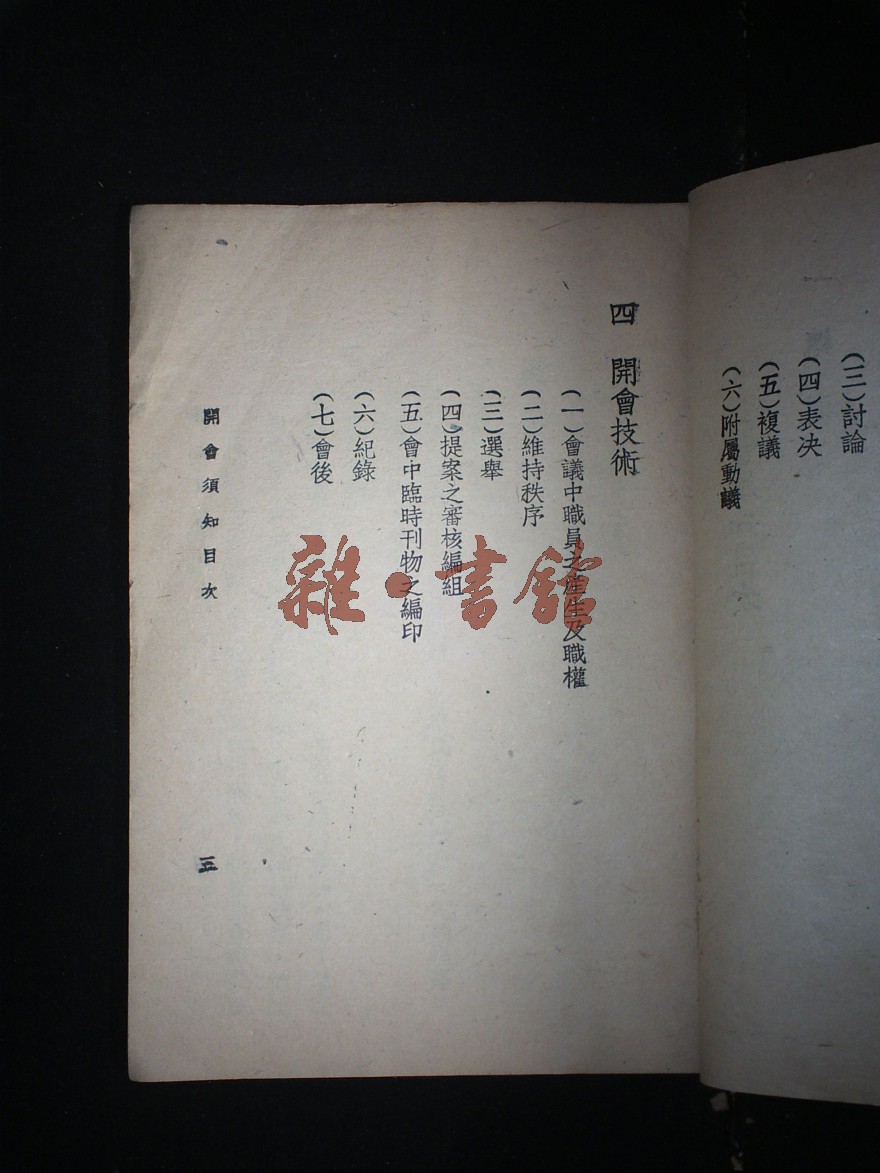 (三)討論
(四)表决
(五)複議
(六)附屬動議
四 開會技術
(一)會議中職員之產生及職權
(二)維持秩序
(三)選舉
(四)提案之審核編組
(五)會中臨時刊物之編印
(六)紀錄
(七)會後
開會須知目次
五
雜·書館